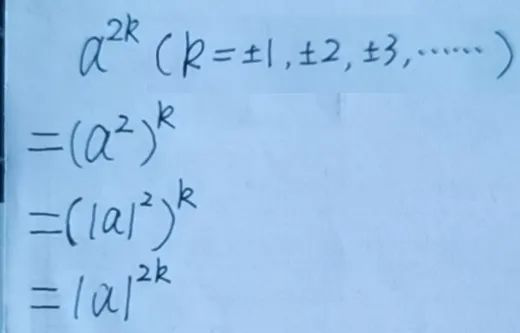 a^{2k} (k = ±1, ±2, ±3, ……)
= (a^2)^k
= (|a|^2)^k
= |a|^{2k}